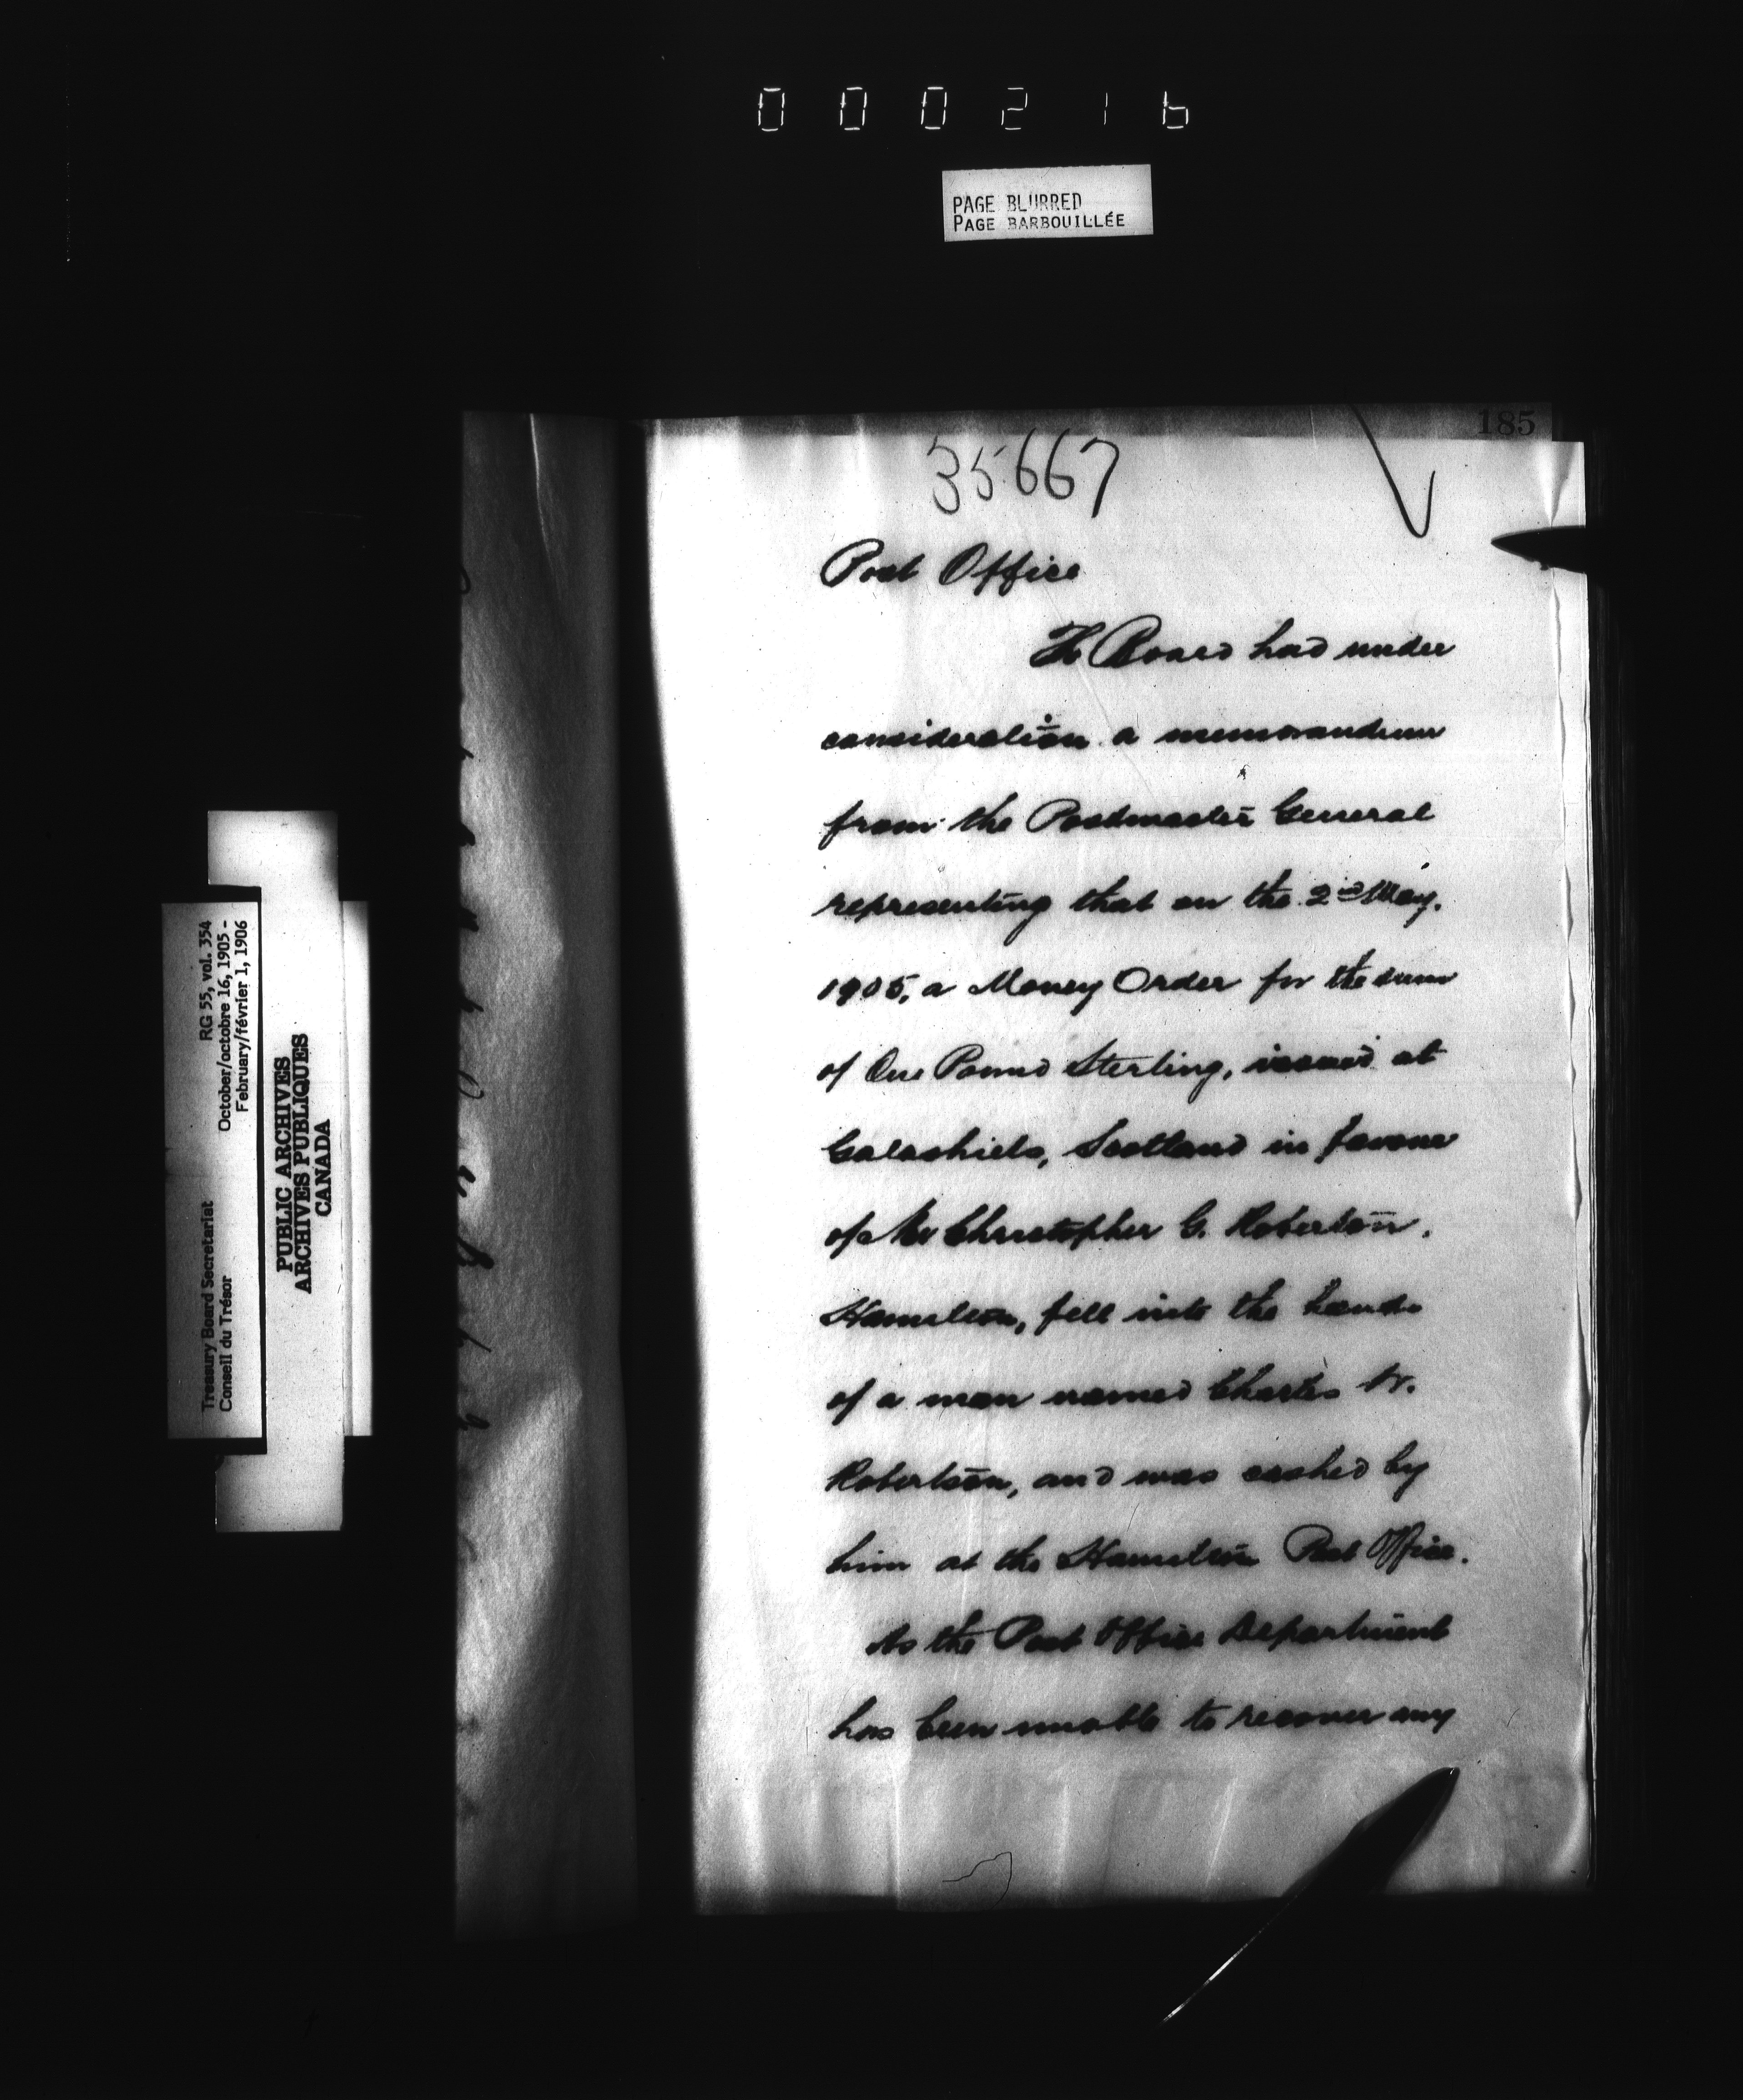 000216
PAGE BLURRED
PAGE BARBOUILLÉE
185
35667
Post Office
The Board had under
consideration a memorandum
from the Postmaster General
representing that on the 2nd May,
1905, a Money Order for the sum
of One Pound Sterling, issued at
Galashiels, Scotland in favour
of Mr Christopher G. Robertson,
Hamilton, fell into the hands
of a man named Charles W.
Robertson, and was cashed by
him at the Hamilton Post Office.
As the Post Office Department
has been unable to recover any
Treasury Board Secretariat RG 55, vol. 354
Conseil du Trésor October/octobre 16, 1905 -
February/février 1, 1906
PUBLIC ARCHIVES
ARCHIVES PUBLIQUES
CANADA